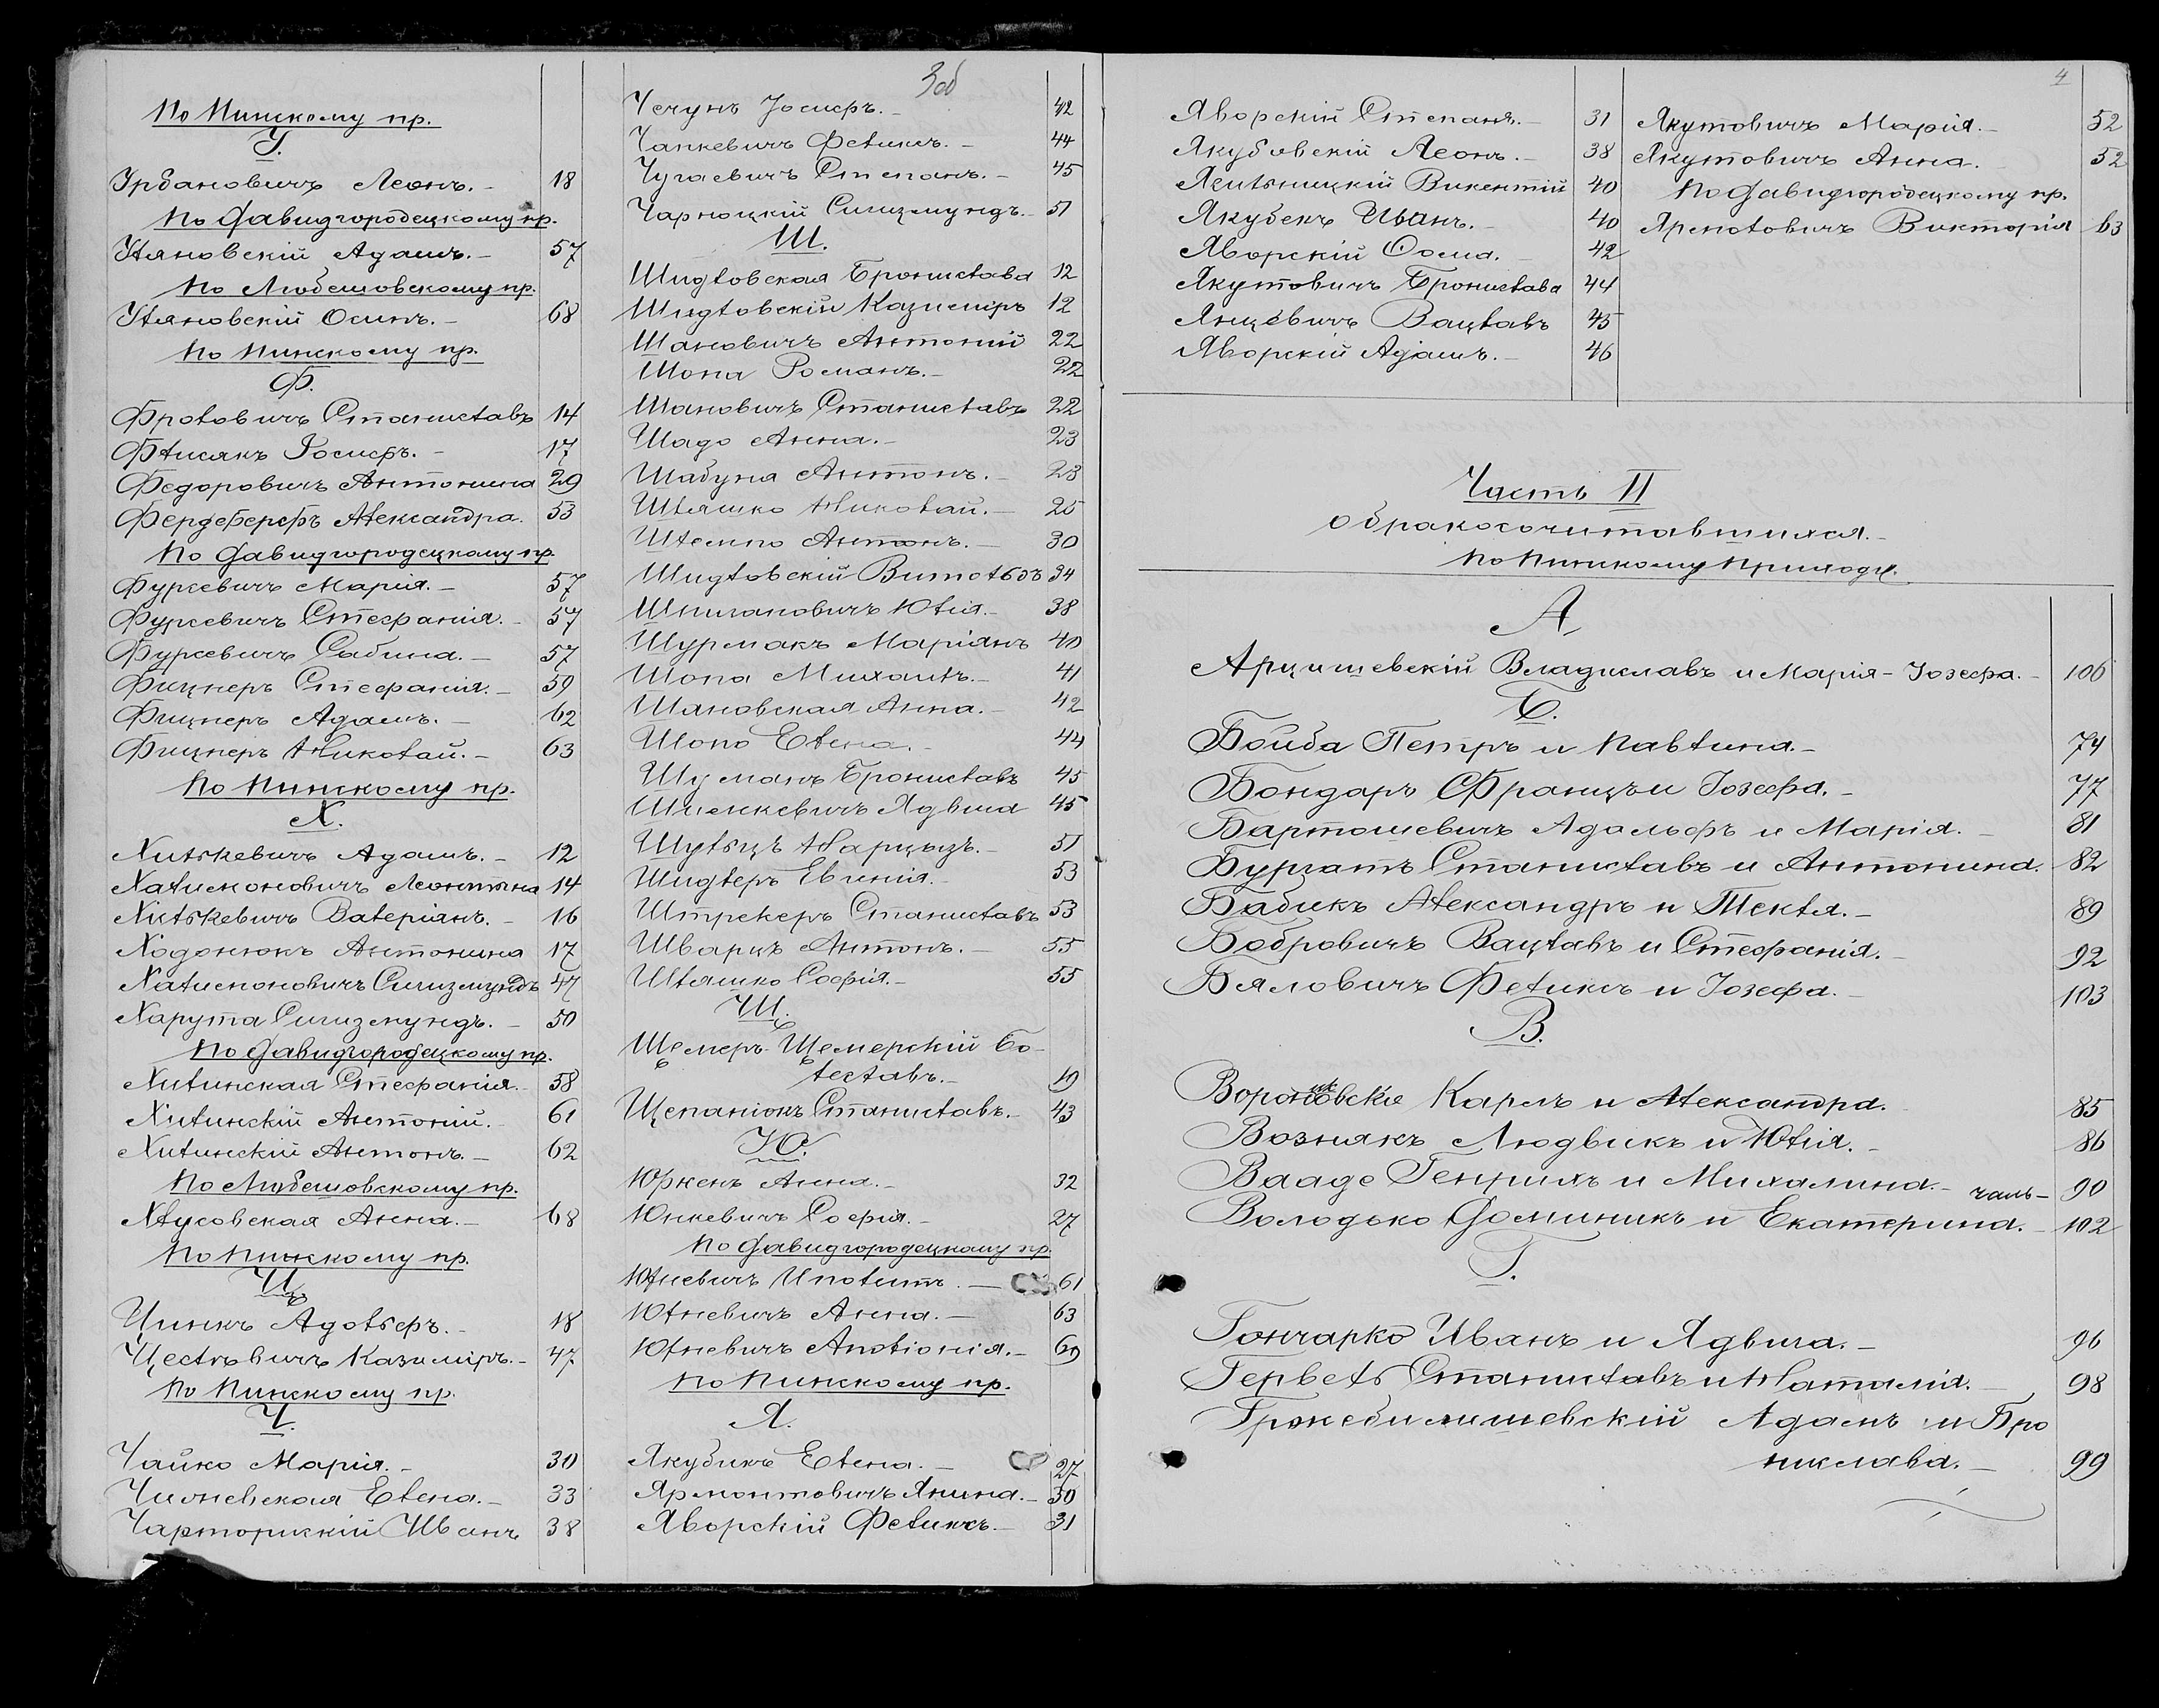 3об
По Пинскому пр.
У.
Урбановичъ Леонъ. - 18
По Давидгородецкому пр.
Уляновскій Адамъ. - 57
По Любешовскому пр.
Уляновскій Осипъ. - 68
По Пинскому пр.
Ф.
Фроловичъ Станиславъ 14
Флисякъ Іосифъ. - 17
Федоровичъ Антонина 29
Фердеберфъ Александра. 53
По Давидгородецкому пр.
Фурсевичъ Марія. - 57
Фурсевичъ Стефанія. - 57
Фурсевичъ Сабина. - 57
Фицнеръ Стефанія. - 59
Фицнеръ Адамъ. - 62
Фицнеръ Николай. - 63
По Пинскому пр.
Х.
Хильkевичъ Адамъ. - 12
Халимоновичъ Леонтина 14
Хильkевичъ Валеріянъ. - 16
Ходонюкъ Антонина 17
Халимоновичъ Сигизмундъ 47
Харута Сигизмундъ. - 50
По Давидгородецкому пр.
Хилинская Стефанія. - 58
Хилинскій Антоній. 61
Хилинскій Антонъ. - 62
По Любешовскому пр.
Хлусовская Анна. - 68
По Пинскому пр.
Ц.
Цинкъ Адольфъ. - 18
Цеслѣвичъ Казиміръ. - 47
По Пинскому пр.
Ч.
Чайко Марія. - 30
Чионевская Елена. - 33
Чарторискій Иванъ 38
Чечунъ Іосифъ. - 42
Чапкевичъ Феликсъ. - 44
Чугаевичъ Степанъ. - 45
Чарноцкій Сигизмундъ. - 51
Ш.
Шидловская Брониslава 12
Шидловскій Казиміръ 12
Шановичъ Антоній 22
Шопа Романъ. - 22
Шановичъ Станиславъ 22
Шадо Анна. - 23
Шабуня Антонъ. - 23
Шляшко Николай. - 25
Шлемпо Антонъ. - 30
Шидловскій Витольдъ 34
Шпигановичъ Юлія. - 38
Шурмакъ Маріянъ 40
Шопа Михаилъ. - 41
Шановская Анна. - 42
Шопо Елена. - 44
Шуманъ Брониславъ 45
Шименкевичъ Ядвига 45
Шульцъ Нарцызъ. - 51
Шидлеръ Евгенія. - 53
Штрекеръ Станиславъ 53
Шварцъ Антонъ. - 55
Шляшко Софія. - 55
Щ.
Щемеръ-Щемерскій Бо-
леславъ. - 19
Щепаніокъ Станиславъ. - 43
Ю.
Юркенъ Анна. - 32
Юнкевичъ Софія. - 27
По Давидгородецкому пр.
Юлневичъ Иполитъ. - 61
Юлневичъ Анна. - 63
Юлневичъ Аполіонія. - 69
По Пинскому пр.
Я.
Якубикъ Елена. - 27
Ярмонтовичъ Янина. - 30
Яворскій Феликсъ. - 31
4
Яворскій Степанъ. - 31
Якубовскій Леонъ. - 38
Яльницкій Викентій 40
Якубекъ Иванъ. - 40
Яворскій Фома. - 42
Якутовичъ Бронислава 44
Янцевичъ Вацлавъ 45
Яворскій Адамъ. - 46
Якутовичъ Марія. - 52
Якутовичъ Анна. 52
По Давидгородецкому пр.
Ярмоловичъ Викторія 63
Часть II
о бракосочитавшихся. -
По Пинскому Приходу.
А.
Арцишевскій Владиславъ и Марія-Іозефа. - 106
Б.
Бойба Петръ и Павлина. - 74
Бондаръ Францъ и Іозефа. - 77
Бартошевичъ Адальфъ и Марія. - 81
Бургатъ Станиславъ и Антонина. 82
Бабикъ Александръ и Текля. - 89
Бобровичъ Вацлавъ и Стефанія. - 92
Бяловичъ Феликсъ и Іозефа. - 103
В.
Воронковскіе Карлъ и Александра. 85
Вознякъ Людвикъ и Юлія. - 86
Вааде Генрихъ и Михалина. - 90
Володько Доминикъ и Екатерина. - 102
Г.
Гончарко Иванъ и Ядвига. - 96
Гервель Станиславъ и Наталія. - 98
Гржебилишевскій Адамъ и Бро
нислава. - 99